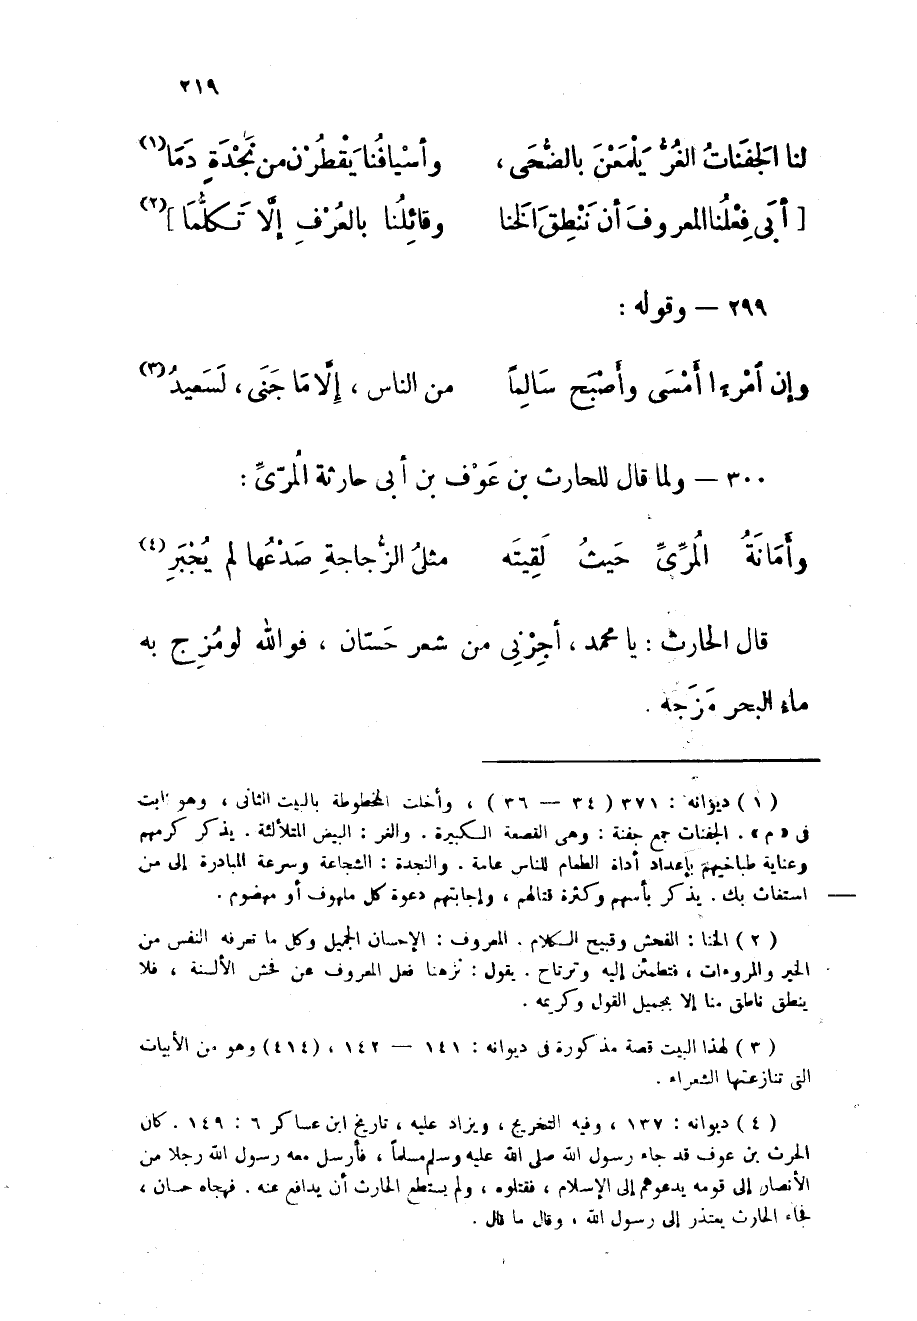 ٢١٩
لنا الجَفَنَاتُ الغُرُّ يَلْمَعْنَ بالضُّحَى ، وأسْيافُنا يَقْطُرْن من نَجْدَةٍ دَمَا (١)
[ أَبَى فِعْلُنا المعروفَ أن نَنْطِقَ الخَنا وقائِلُنا بالعُرْفِ إلَّا تَكلُّمَا ] (٢)
٢٩٩ – وقوله :
وإن ٱمْرءا أَمْسَى وأَصْبَح سَالِماً من الناس ، إِلَّا مَا جَنَى ، لَسَعِيدُ (٣)
٣٠٠ – ولما قال للحارث بن عَوْف بن أبى حارثة الُمرّىِّ :
وأَمَانَةُ الُمرِّىِّ حَيثُ لَقِيتَه مثلُ الزُّجاجةِ صَدْعُها لم يُجْبَرِ (٤)
قال الحارث : يا محمد ، أجِرْنِى من شعر حَسّان ، فوالله لو مُزِج به
ماء البحر مَزَجَه .
( ١ ) ديوانه : ٣٧١ ( ٣٤ – ٣٦ ) ، وأخلت المخطوطة بالبيت الثانى ، وهو ثابت
فى « م » . الجفنات جمع جفنة : وهى القصعة الكبيرة . والغر : البيض المتلألئة . يذكر كرمهم
وعناية طباخيهم بإعداد أداة الطعام للناس عامة . والنجدة : الشجاعة وسرعة المبادرة إلى من
استغاث بك . يذكر بأسهم وكثرة قتالهم ، وإجابتهم دعوة كل ملهوف أو مهضوم .
( ٢ ) الخنا : الفحش وقبيح الكلام . المعروف : الإحسان الجميل وكل ما تعرفه النفس من
الخير والمروءات ، فتطمئن إليه وترتاح . يقول : نزهنا فعل المعروف عن فحش الألسنة ، فلا
ينطق ناطق منا إلا بجميل القول وكريمه .
( ٣ ) لهذا البيت قصة مذكورة فى ديوانه : ١٤١ – ١٤٢ ، (٤١٤) وهو من الأبيات
التى تنازعتها الشعراء .
( ٤ ) ديوانه : ١٣٧ ، وفيه التخريج ، ويزاد عليه ، تاريخ ابن عساكر ٦ : ١٤٩ . كان
الحرث بن عوف قد جاء رسول الله صلى الله عليه وسلم مسلماً ، فأرسل معه رسول الله رجلا من
الأنصار إلى قومه يدعوهم إلى الإسلام ، فقتلوه ، ولم يستطع الحارث أن يدافع عنه . فهجاه حسان ،
فجاء الحارث يعتذر إلى رسول الله ، وقال ما قال .